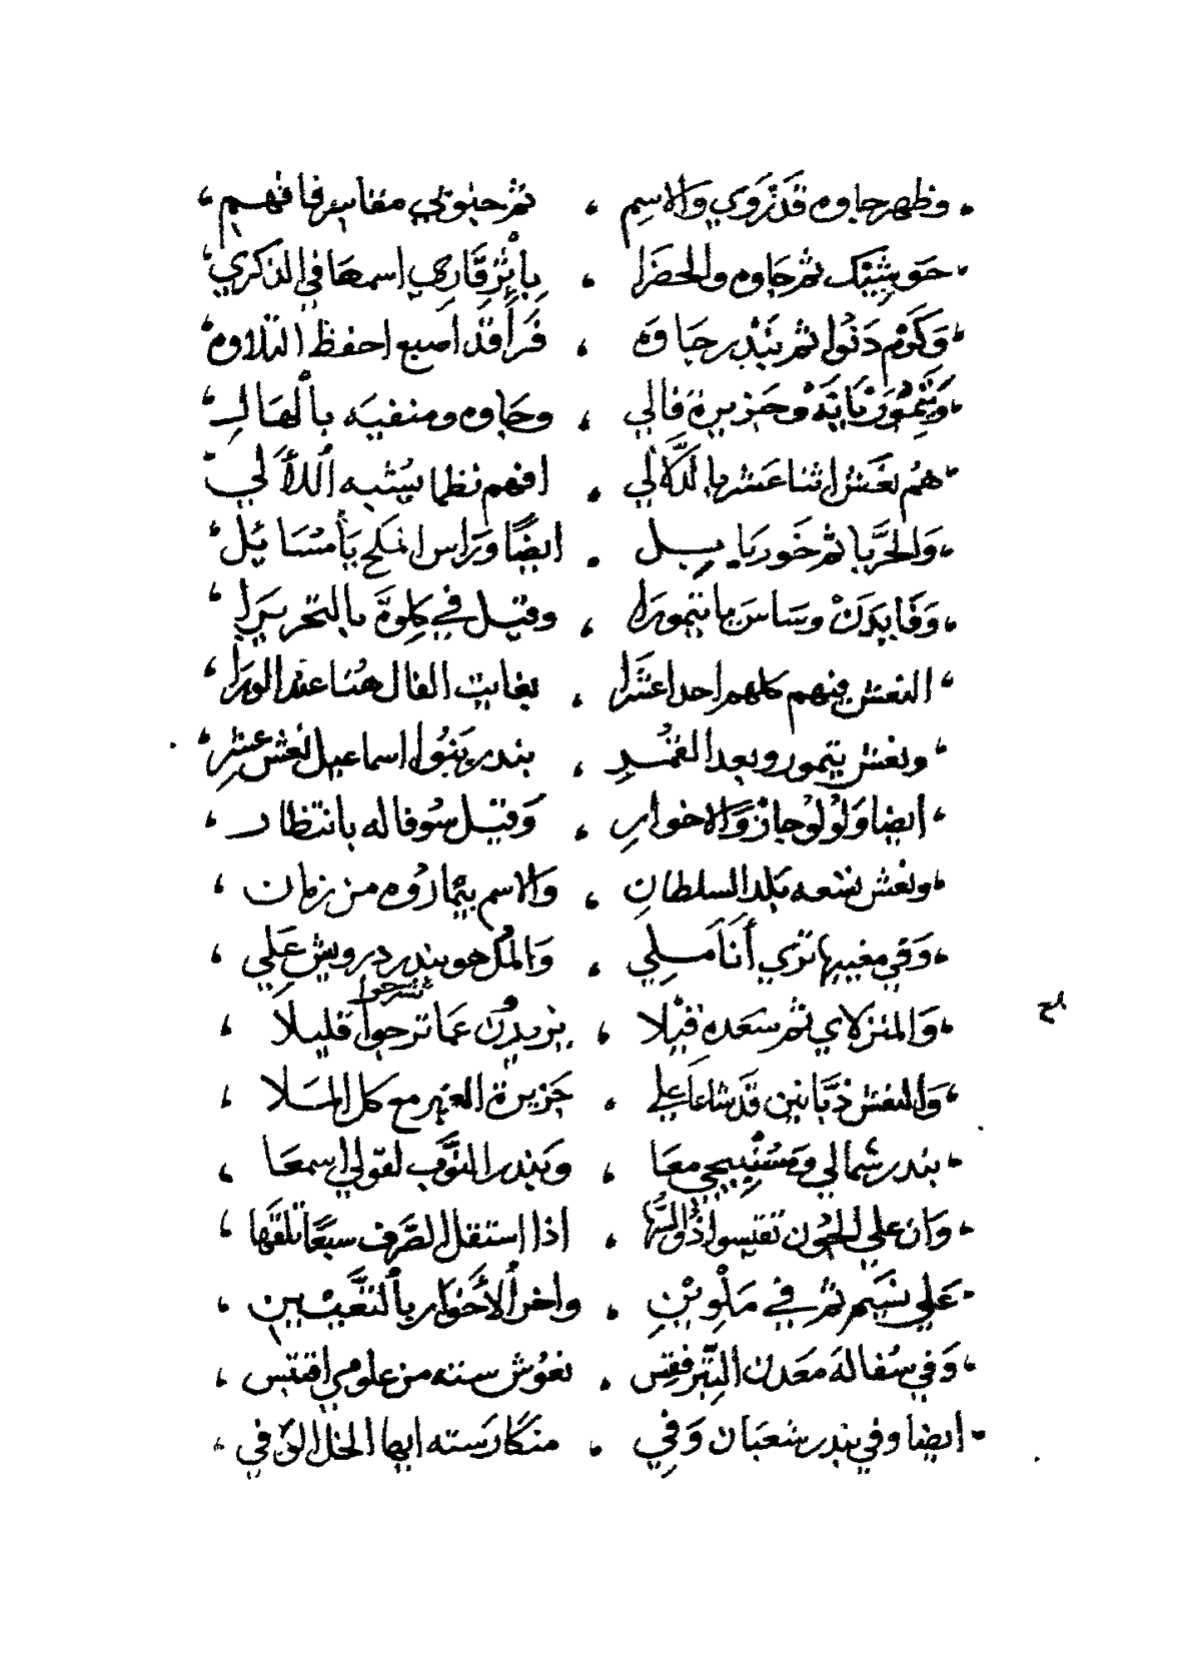 وظهر جاوه قد نروي والاسم ، ثم جنوبي مقاسر فافهم
حو بثينك ثم جاوه والحضرا ، بابثر قاري اسمعا في الذكري
وكوم دنوا ثم بندر جاوه ، فرا قد اصبع احفظ التلاوه
وتيمور نانه وجزيرة فالي ، وجاوه ومنفيه بالهال
هم نعش اثنا عشر بالدكالي ، افهم نظما يشبه اللألي
والحريا ثم خوريا بيل ، ايضا وراس الملح يا مسائل
وفايدن وساس يا تيمورا ، وقيل في كلوة بالتحريرا
النعش فيهم كلهم احد اعشرا ، بغايت الفال هنا عند الورا
ونعش يتمور وبعد القمد ، بندر بنوا اسماعيل نعش عشر
ايضا ولولوجان والاخوار ، وقيل سوفاله بانتظار
ونعش تسعه بلد السلطان ، والاسم بيماروه من زمان
وفي مغيبها تري أنا ملي ، والمل هو بندر درويش علي
والمنزلاي ثم سعده قيلا ، يزيدن عما ترحوا قليلا
شرحوا
والنعش ذبابين قد شاعا علي ، جزيرة العنبر مع كل الملا
بندر شمالي ومسنبيجي معا ، وبندر النوب لقولي اسمعا
وان علي الجون تقيسوا ذا السها ، اذا استقل الصرف سبعا تلقها
علي نسيم ثم في ملوين ، واخر الأخوار بالتغيبين
وفي سفاله معدن التبر فقس ، نعوش سته من علومي اقتبس
ايضا وفي بندر شعبان وفي ، منكار سته ايها الخل الوفي